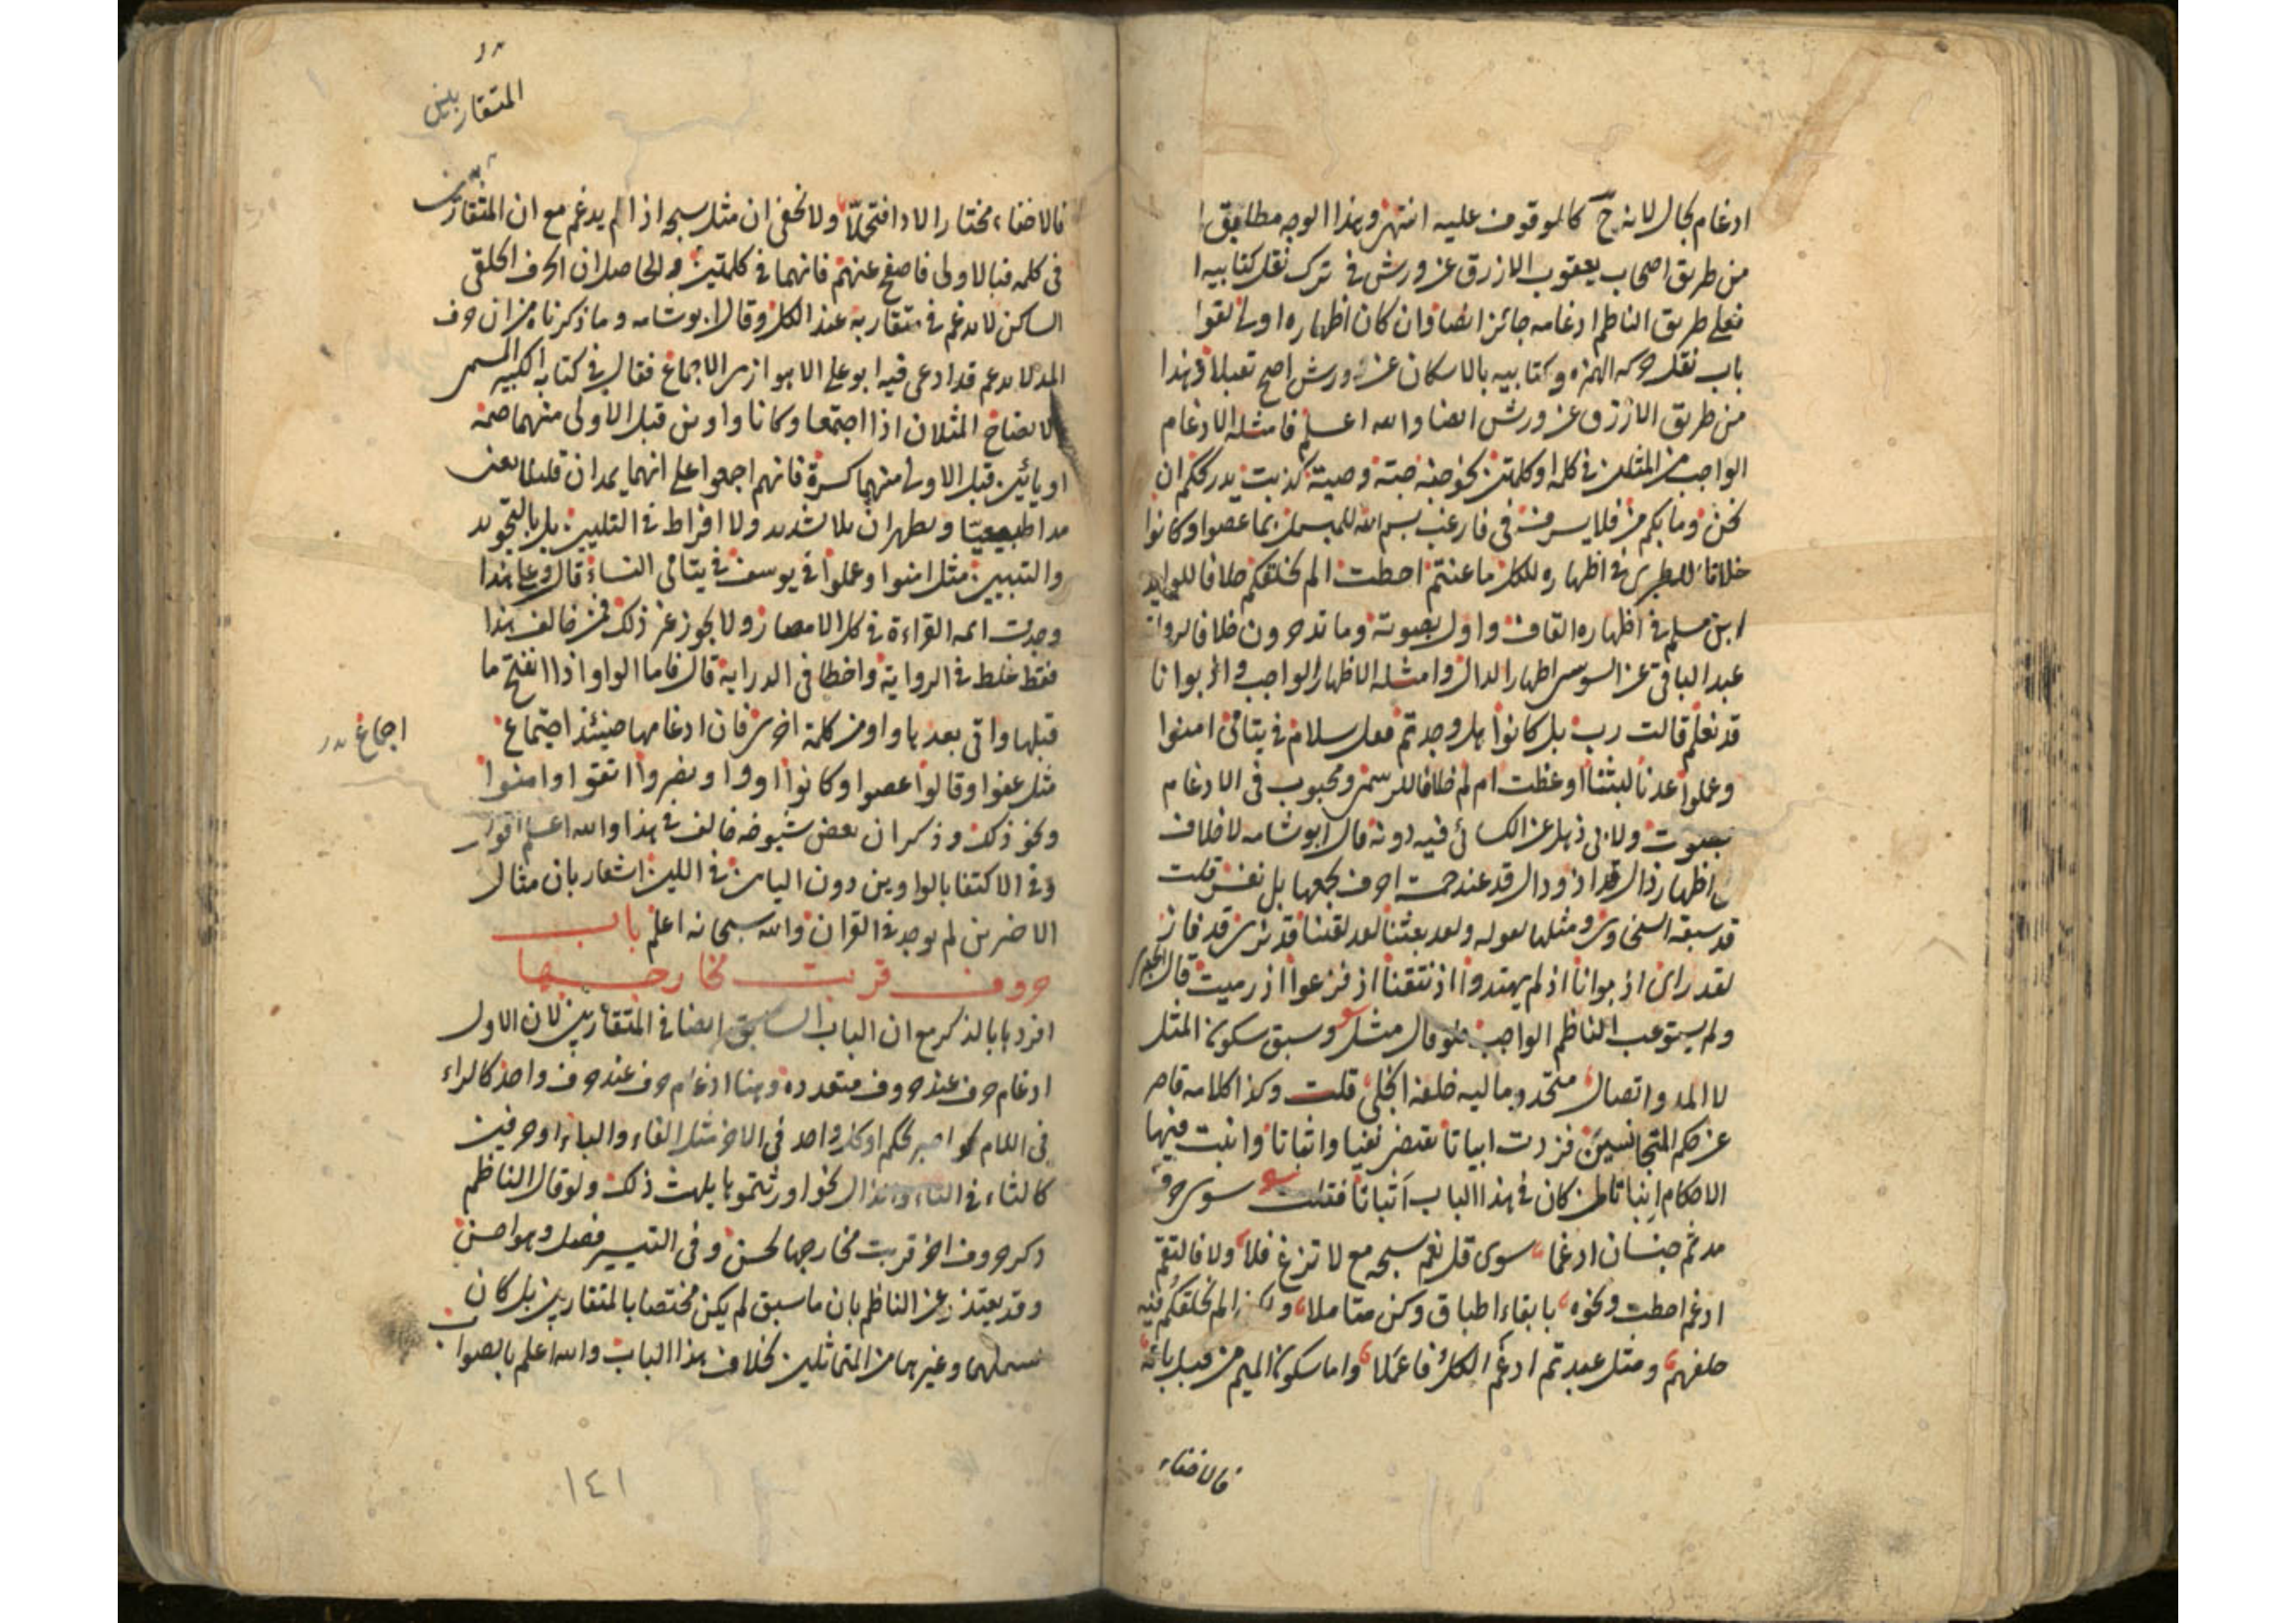 ادغام بحال لانه ح كالموقوف عليه انتهى وبهذا الوجه مطابق
من طريق اصحاب يعقوب الازرق عن ورش فى ترك نقل كتابيه
فعلى طريق الناظم ادغامه جائز ايضا وان كان اظهاره اولى
باب نقل حركة الهمزه وكتابيه بالاسكان عن ورش اصح تقبلا
من طريق الازرق عن ورش ايضا والله اعلم فامثله الادغام
الواجب من المثلين فى كلمة او كلمتين نحو
نحن وما بكم من فلا يسرف فى فارغب بسم الله بما عصوا وكانوا
خلافا فى اظهاره للكل ما عنتم احطت الم نخلقكم خلافا
ابن مسلم فى اظهاره القاف واول
عبد الباقى عن السوسى اظهار الدال وامثله الاظهار الواجب
قد نعلم قالت رب بل كانوا هل وجدتم سلام فى يتامى امنوا
وعملوا عدنا لبثنا اوعظت ام لم خلافا ومحبوب فى الادغام
ولابى ذهل عن الكسائى فيه دونه قال ابو شامه لا خلاف
اظهار ذال اذ ودال قد عند خمسة احرف يجمعها بل نفس قلت
قد سبقه السخاوى ومثلها بقوله ولقد بعثنا لقد لقينا قد نرى قد فاز
لقد راى اذ بوانا اذ لم يهتدوا اذ نتقنا اذ فزعوا اذ رميت قال
ولم يستوعب الناظم الواجب فلو قال مثل وسبق سكون المثل
لا المد واتصال متحد وماليه خلفه انجلى قلت وكذا كلامه قاصر
عن حكم المتجانسين فزدت ابياتا تقتضى نفيا واثباتا واثبت فيها
الاحكام اثباتا كان فى هذا الباب اثباتا فقلت سوى حرف
مد ثم جنسان ادغما سوى قل نعم سبحه مع لا تزغ فلا ولا فالتقم
ادغم احطت ونحوه بابقاء اطباق وكن متاملا الم نخلقكم فيه
خلفهم ومثل عبدتم ادغم الكل فاعملا واما سكون الميم من قبل بائه
فالاخفاء
المتقاربين
فالاخفاء مختار الادا فتحملا ولا يخفى ان مثل سبحه اذا لم يدغم مع ان المتقاربين
فى كلمه فبالاولى فاصفح عنهم فانهما فى كلمتين والحاصل ان الحرف الحلقى
الساكن لا يدغم فى متقاربه عند الكل وقال ابو شامه وما ذكرناه من ان حرف
المد لا يدغم قد ادعى فيه ابو على الاهوازى الاجماع فقال فى كتابه الكبير المسمى
الايضاح المثلان اذا اجتمعا وكانا واوين قبل الاولى منهما ضمه
او يائين قبل الاولى منهما كسرة فانهم اجمعوا على انهما يمدان قليلا يعنى
مدا طبيعيا ويظهران بلا تشديد ولا افراط فى التليين بل بالتجويد
والتبيين مثل امنوا وعملوا فى يوسف فى يتامى النساء قال وعلى هذا
وجدت ائمه القراءة فى كل الامصار ولا يجوز غير ذلك فمن خالف هذا
فقط غلط فى الرواية واخطا فى الدراية قال فاما الواو اذا انفتح ما
قبلها واتى بعدها واو من كلمة اخرى فان ادغامها حينئذ اجتماع
اجماع
مثل عفوا وقالوا عصوا وكانوا اووا ونصروا اتقوا وامنوا
ونحو ذلك وذكر ان بعض شيوخه خالف فى هذا والله اعلم اقول
وفى الاكتفا بالواوين دون اليائين فى اللين اشعار بان مثال
الاخرين لم يوجد فى القران والله سبحانه اعلم باب
حروف قربت مخارجها
افردها بالذكر مع ان الباب السابق ايضا فى المتقاربين لان الاول
ادغام حرف عند حروف متعدده وهنا ادغام حرف عند حرف واحد كالراء
فى اللام كواصبر لحكم او كل واحد فى الاخر مثل الفاء والباء او حرفين
كالثاء فى التاء والذال نحو اورثتموها يلهث ذلك ولو قال الناظم
ذكر حروف اخر قربت مخارجها لحسن وفى التيسير فصل وهو احسن
وقد يعتذر عن الناظم بان ما سبق لم يكن مختصا بالمتقاربين بل كان
يشملهما وغيرهما من المتماثلين بخلاف هذا الباب والله اعلم بالصواب
١٤١